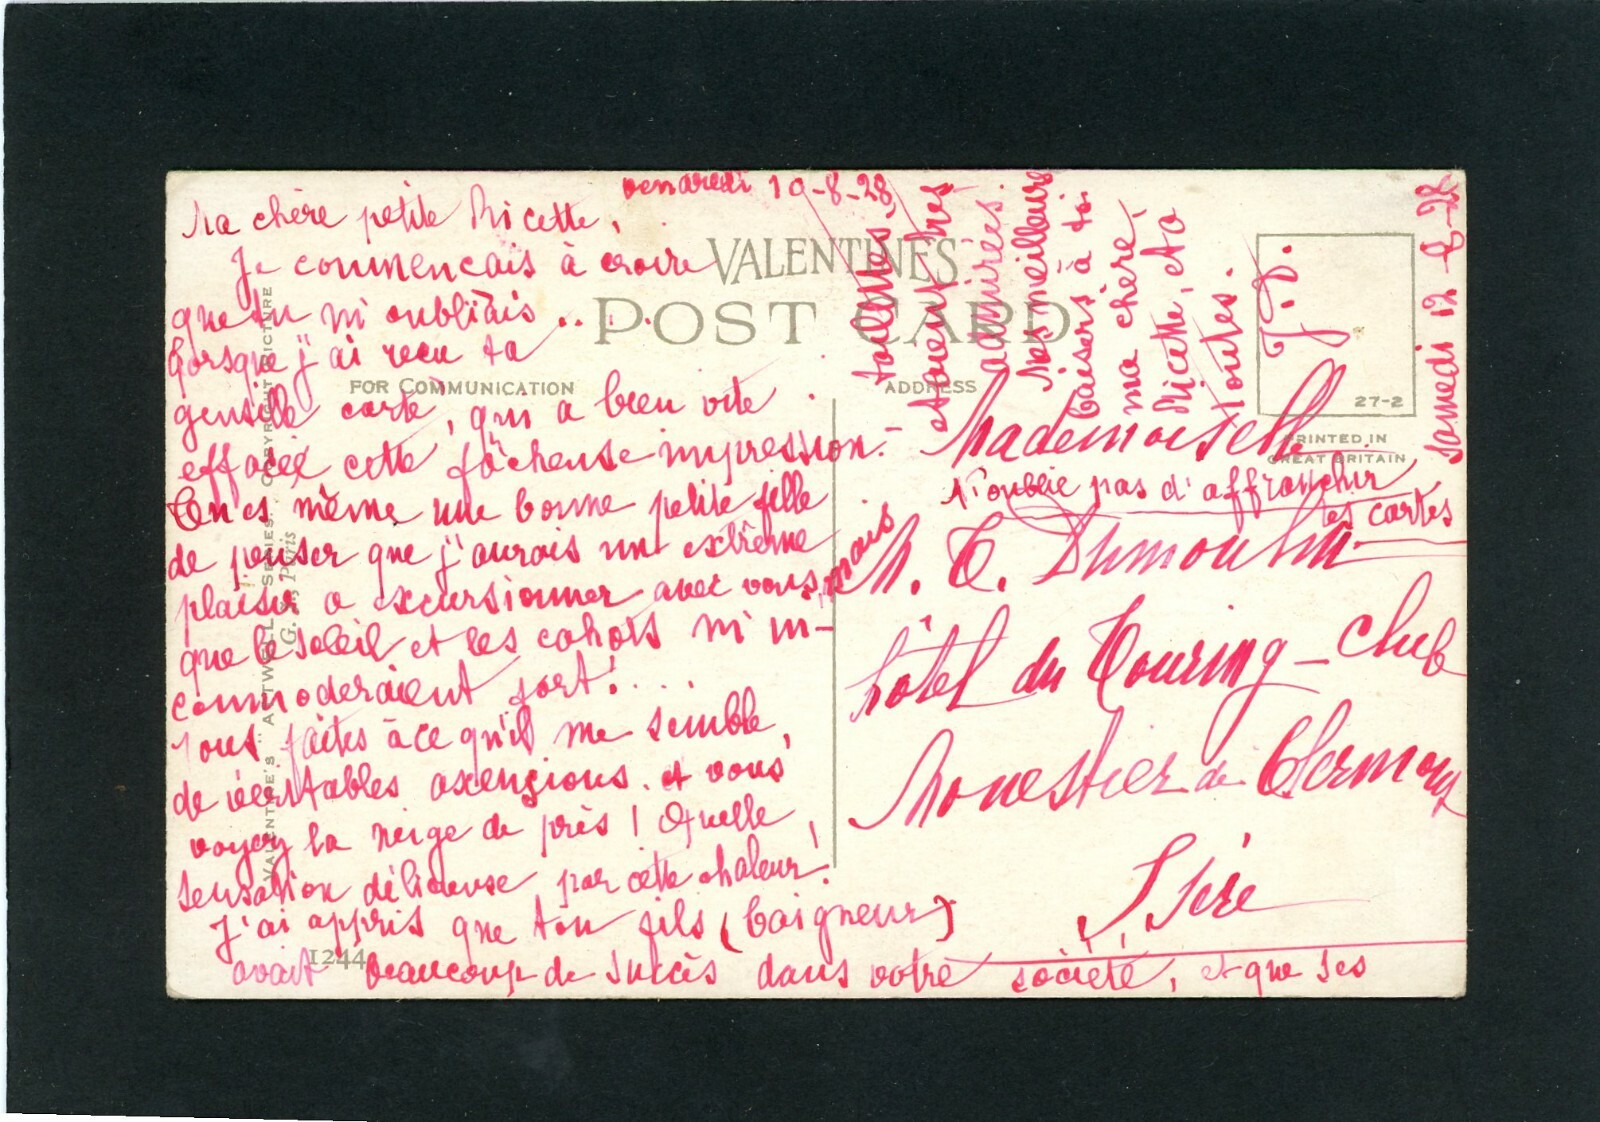 vendredi 10-8-28
Ma chère petite Ricette,
Je commençais à croire
que tu m'oubliais . . . .
lorsque j'ai reçu ta
gentille carte, qui a bien vite
effacée cette fâcheuse impression.-
Tu es même une bonne petite fille
de penser que j'aurais un extrême
plaisir a excursionner avec vous, mais
que le soleil et les cahots m'in-
commoderaient fort! . . . .
Vous faites à ce qu'il me semble,
de véritables ascensions. et vous
voyez la neige de près! Quelle
sensation délicieuse par cette chaleur!
J'ai appris que ton fils (baigneur)
avait beaucoup de succès dans votre société, et que ses
toilettes,
étaient très
admirées.
Mes meilleurs
baisers à toi
ma chère
Ricette, et à
toutes.
J.D.
Samedi 12-8-28
VALENTINES
POST CARD
FOR COMMUNICATION
ADDRESS
27-2
PRINTED IN
GREAT BRITAIN
Mademoiselle
N'oublie pas d'affranchir
tes cartes
M. T. Dumoulin
hôtel du Touring-Club
Monestier de Clermont
Isère
VALENTINE'S "ATTWELL" SERIES. COPYRIGHT PICTURE
Paris
1244